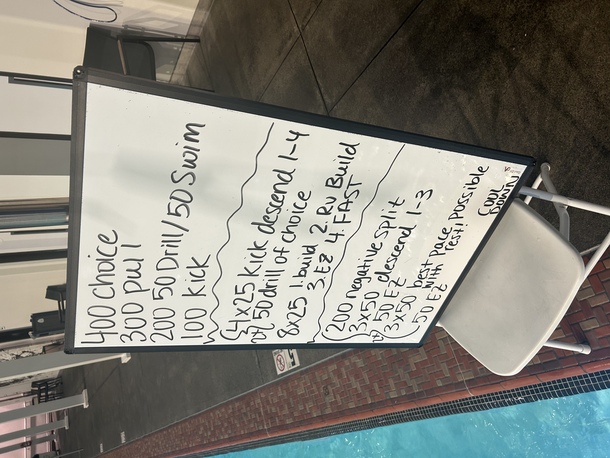 400 choice
300 pull
200 50 Drill/50 Swim
100 kick
4x25 kick descend 1-4
50 drill of choice
8x25 1. build 2. Rv Build
3. EZ 4. FAST
200 negative split
3x50 descend 1-3
50 EZ
3x50 best pace possible
50 EZ with rest!
COOL
DOWN